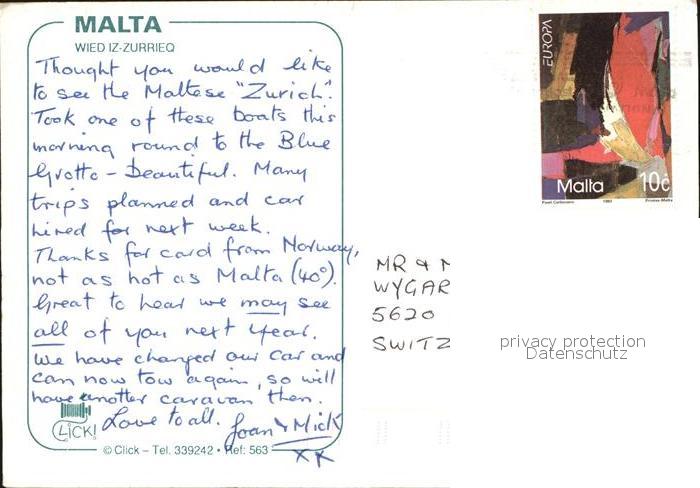 MALTA
WIED IZ-ZURRIEQ
Thought you would like
to see the Maltese "Zurich".
Took one of these boats this
morning round to the Blue
Grotto - Beautiful. Many
trips planned and car
hired for next week.
Thanks for card from Norway,
not as hot as Malta (40°).
Great to hear we may see
all of you next year.
We have changed our car and
can now tow again, so will
have another caravan then.
Love to all. Joan & Mick
xx
CLICK!
© Click - Tel. 339242 • Ref: 563
EUROPA
Malta 10c
1993 Printex-Malta
MR & M
WYGAR
5620
SWITZ
privacy protection
Datenschutz